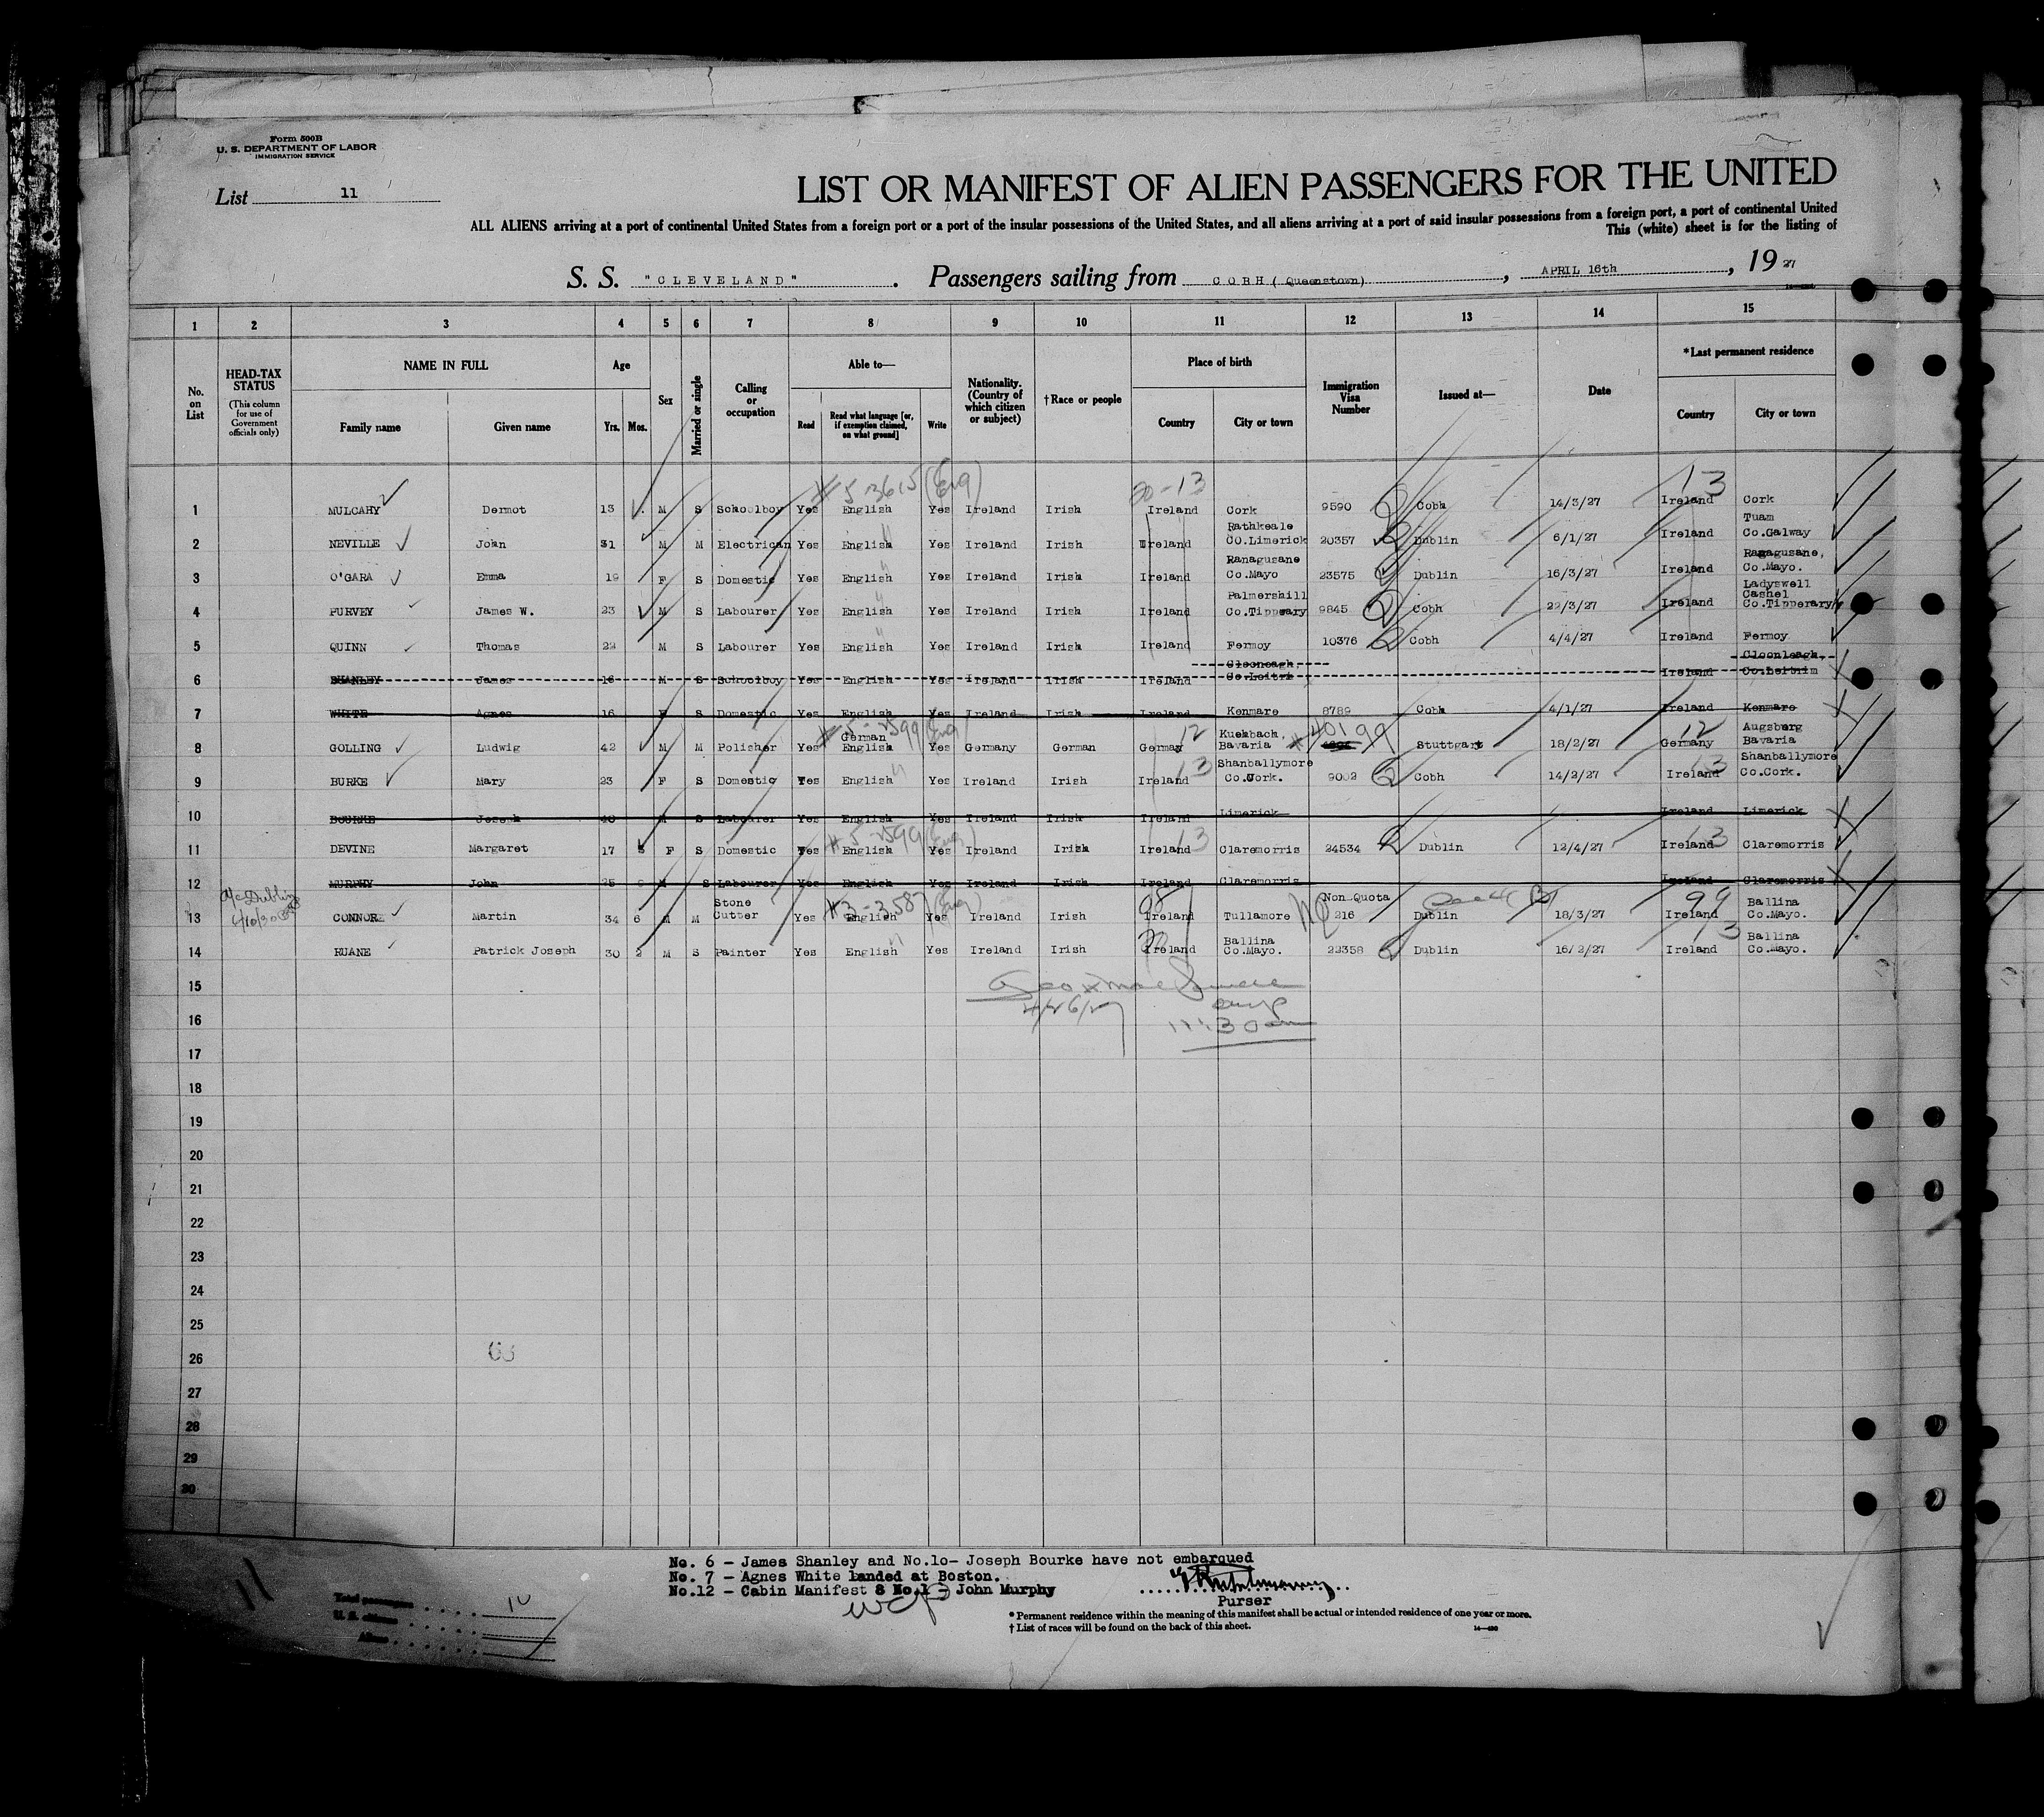 Form 500B
U. S. DEPARTMENT OF LABOR
IMMIGRATION SERVICE
List 11
LIST OR MANIFEST OF ALIEN PASSENGERS FOR THE UNITED
ALL ALIENS arriving at a port of continental United States from a foreign port or a port of the insular possessions of the United States, and all aliens arriving at a port of said insular possessions from a foreign port, a port of continental United
This (white) sheet is for the listing of
S. S. "CLEVELAND" . Passengers sailing from COBH (Queenstown) , APRIL 16th , 19 27
1 2 3 4 5 6 7 8 9 10 11 12 13 14 15
No. on List
HEAD-TAX STATUS (This column for use of Government officials only)
NAME IN FULL Family name Given name
Age Yrs. Mos.
Sex
Married or single
Calling or occupation
Able to— Read Read what language [or, if exemption claimed, on what ground] Write
Nationality. (Country of which citizen or subject)
†Race or people
Place of birth Country City or town
Immigration Visa Number
Issued at—
Date
*Last permanent residence Country City or town
# 5-3615 (Eng) 20-13 13
1 MULCAHY Dermot 13 M S Schoolboy Yes English Yes Ireland Irish Ireland Cork 9590 Cobh 14/3/27 Ireland Cork
2 NEVILLE John 31 M M Electrican Yes English Yes Ireland Irish Ireland Rathkeale CO.Limerick 20357 Dublin 6/1/27 Ireland Tuam Co.Galway
3 O'GARA Emma 19 F S Domestic Yes English Yes Ireland Irish Ireland Ranagusane Co.Mayo 23575 Dublin 16/3/27 Ireland Ranagusane, Co.Mayo.
4 PURVEY James W. 23 M S Labourer Yes English Yes Ireland Irish Ireland Palmershill Co.Tipperary 9845 Cobh 22/3/27 Ireland Ladyswell Cashel Co.Tipperary
5 QUINN Thomas 22 M S Labourer Yes English Yes Ireland Irish Ireland Fermoy 10376 Cobh 4/4/27 Ireland Fermoy
6 SHANLEY James 16 M S Schoolboy Yes English Yes Ireland Irish Ireland Clooneagh, Co.Leitri Ireland Cloonleagh, Co.Leitrim
7 WHITE Agnes 16 F S Domestic Yes English Yes Ireland Irish Ireland Kenmare 8789 Cobh 4/1/27 Ireland Kenmare
# 5-2599 (Eng) 12 40199 12
8 GOLLING Ludwig 42 M M Polisher Yes German English Yes Germany German Germay Kuehbach, Bavaria Stuttgart 18/2/27 Germany Augsburg Bavaria
9 BURKE Mary 23 F S Domestic Yes English Yes Ireland Irish Ireland 13 Shanballymore Co.Cork. 9002 Cobh 14/2/27 Ireland 13 Shanballymore Co.Cork.
10 BOURKE Joseph 40 M S Labourer Yes English Yes Ireland Irish Ireland Limerick Ireland Limerick
# 5-2599 (Eng)
11 DEVINE Margaret 17 F S Domestic Yes English Yes Ireland Irish Ireland 13 Claremorris 24534 Dublin 12/4/27 Ireland 13 Claremorris
12 MURPHY John 25 M S Labourer Yes English Yes Ireland Irish Ireland Claremorris Ireland Claremorris
13 CONNOR Martin 34 6 M M Stone Cutter Yes English Yes Ireland Irish Ireland Tullamore Non Quota 216 Dublin 18/3/27 Ireland 99 Ballina Co.Mayo.
14 RUANE Patrick Joseph 30 2 M S Painter Yes English Yes Ireland Irish Ireland Ballina Co.Mayo. 22358 Dublin 16/2/27 Ireland 13 Ballina Co.Mayo.
15
16 4/26/27 11:30am
17
18
19
20
21
22
23
24
25
26
27
28
29
30
No. 6 - James Shanley and No.1o- Joseph Bourke have not embarqued
No. 7 - Agnes White landed at Boston.
No.12 - Cabin Manifest 8 No.1 John Murphy
Purser
11
Total passengers 10
U. S. citizens
Aliens
* Permanent residence within the meaning of this manifest shall be actual or intended residence of one year or more.
† List of races will be found on the back of this sheet.
14—430